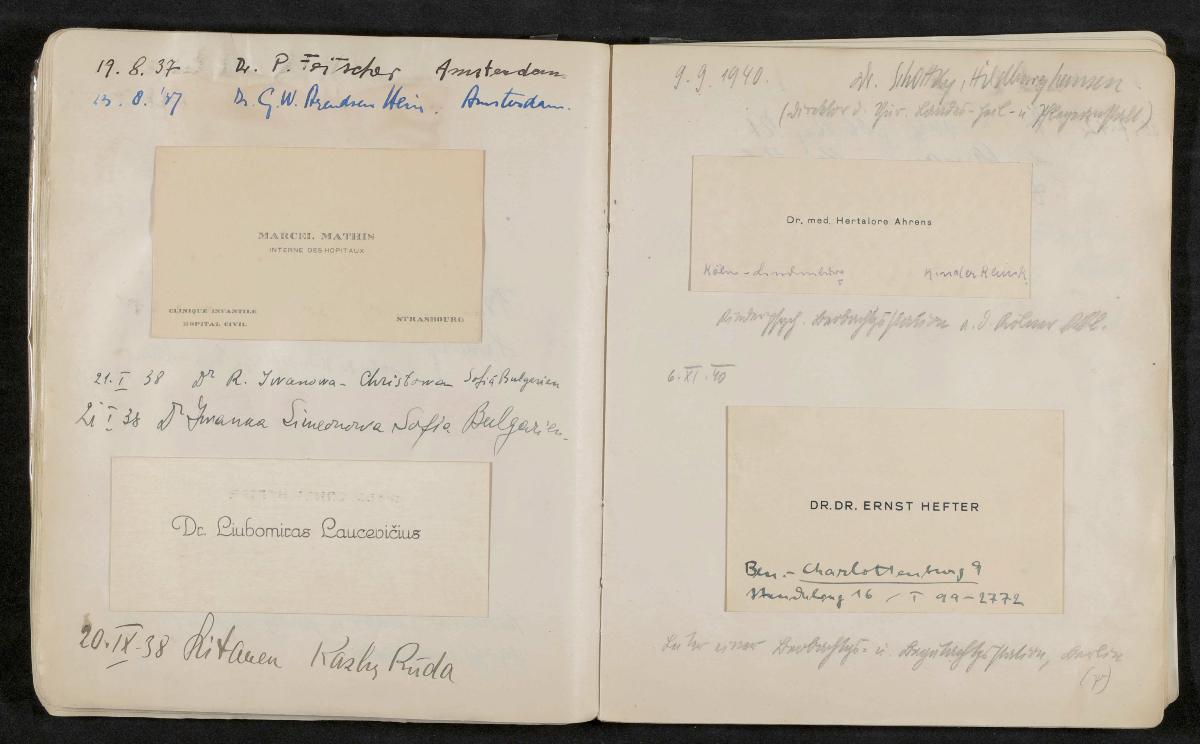 19. 8. 37 Dr. P. Amsterdam
23. 8. '37 Dr. G. W. Arendsen Hein. Amsterdam.
MARCEL MATHIS
INTERNE DES HOPITAUX
CLINIQUE INFANTILE
HOPITAL CIVIL
STRASBOURG
21. I 38 Dr R. Iwanowa - Christowa Sofia Bulgarien
21 I 38 Dr Iwanka Simeonowa Sofia Bulgarien.
Dr. Liubomiras Laucevičius
20. IX. 38 Kazlų Rūda
9. 9. 1940. Dr. Schottky, Hildburghausen
(Direktor d. Thür. Landes-Heil- u. Pflegeanstalt)
Dr. med. Hertalore Ahrens
Köln - Lindenburg Kinderklinik.
Kinderpsych. Beobachtgsstation a. d. Kölner
6. XI. 40
DR. DR. ERNST HEFTER
Bln. - Charlottenburg 9
16 / 99-2772
Leiter einer Beobachtgs- u. Begutachtgsstation, Berlin